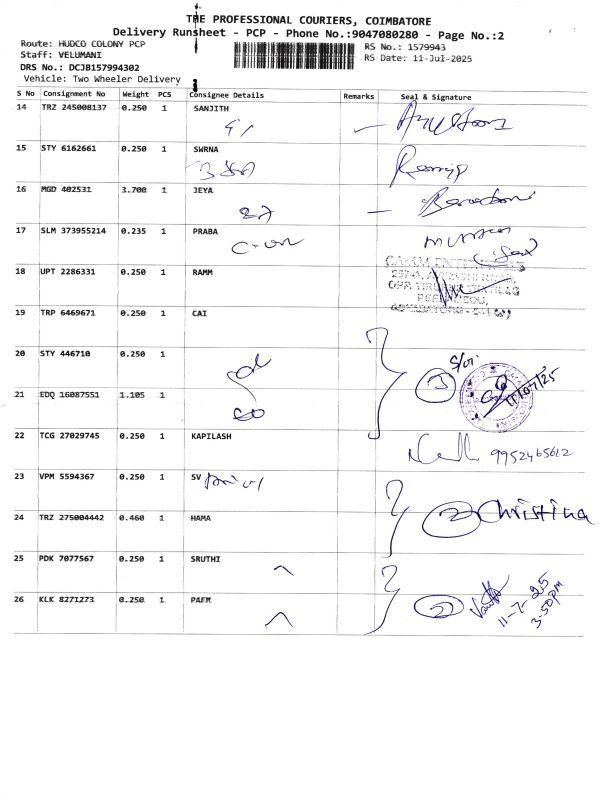 THE PROFESSIONAL COURIERS, COIMBATORE
Delivery Runsheet - PCP - Phone No.:9047080280 - Page No.:2
Route: HUDCO COLONY PCP
RS No.: 1579943
Staff: VELUMANI
RS Date: 11-Jul-2025
DRS No.: DCJB157994302
Vehicle: Two Wheeler Delivery
S No Consignment No Weight PCS Consignee Details Remarks Seal & Signature
14 TRZ 245008137 0.250 1 SANJITH
15 STY 6162661 0.250 1 SWRNA
16 MGD 402531 3.700 1 JEYA
17 SLM 373955214 0.235 1 PRABA
18 UPT 2286331 0.250 1 RAMM
19 TRP 6469671 0.250 1 CAI
20 STY 446710 0.250 1
3
11/07/25
21 EDQ 16087551 1.105 1
22 TCG 27029745 0.250 1 KAPILASH
9952465612
23 VPM 5594367 0.250 1 SV
2 Christina
24 TRZ 275004442 0.460 1 HAMA
25 PDK 7077567 0.250 1 SRUTHI
26 KLK 8271273 0.250 1 PAEM
2
11-7-25
3-50pm